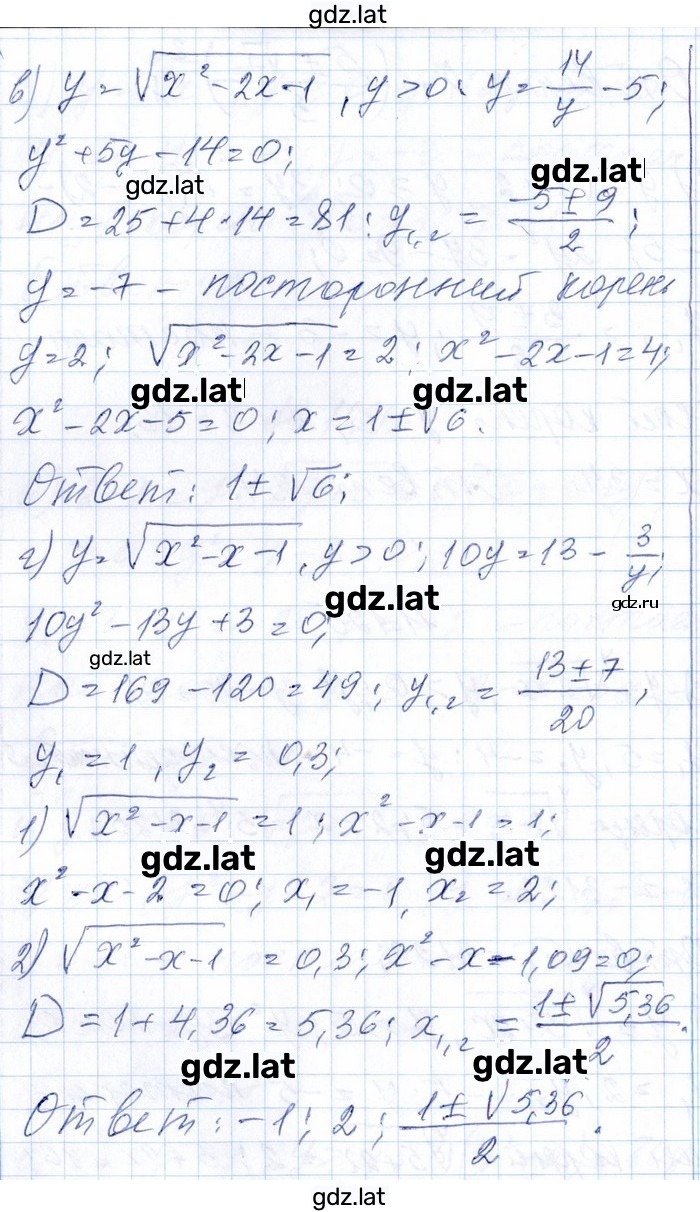 gdz.lat
в) y = √(x² - 2x - 1), y > 0 : y = 14/y - 5;
y² + 5y - 14 = 0;
gdz.lat gdz.lat
D = 25 + 4 · 14 = 81 : y₁,₂ = (-5 ± 9)/2;
y = -7 - посторонний корень
y = 2; √(x² - 2x - 1) = 2; x² - 2x - 1 = 4;
gdz.lat gdz.lat
x² - 2x - 5 = 0; x = 1 ± √6.
Ответ: 1 ± √6;
г) y = √(x² - x - 1), y > 0; 10y = 13 - 3/y;
gdz.lat gdz.ru
10y² - 13y + 3 = 0;
gdz.lat
D = 169 - 120 = 49; y₁,₂ = (13 ± 7)/20,
y₁ = 1, y₂ = 0,3;
1) √(x² - x - 1) = 1; x² - x - 1 = 1;
gdz.lat gdz.lat
x² - x - 2 = 0; x₁ = -1, x₂ = 2;
2) √(x² - x - 1) = 0,3; x² - x - 1,09 = 0;
D = 1 + 4,36 = 5,36; x₁,₂ = (1 ± √5,36)/2.
gdz.lat gdz.lat
Ответ: -1; 2; (1 ± √5,36)/2.
gdz.lat